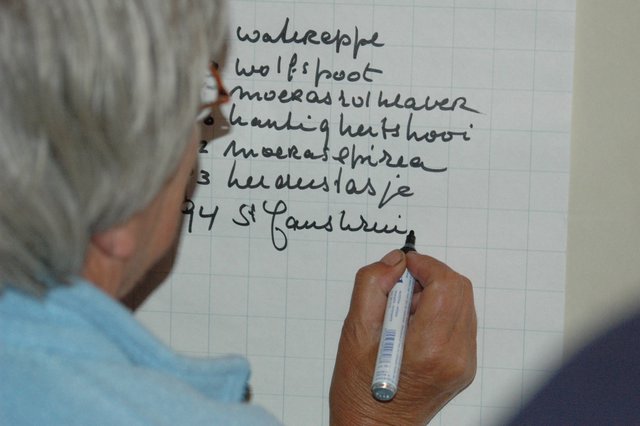 watereppe
wolfspoot
moerasrolklaver
0 kantig hertshooi
2 moerasspirea
3 herderstasje
94 St Janskrui